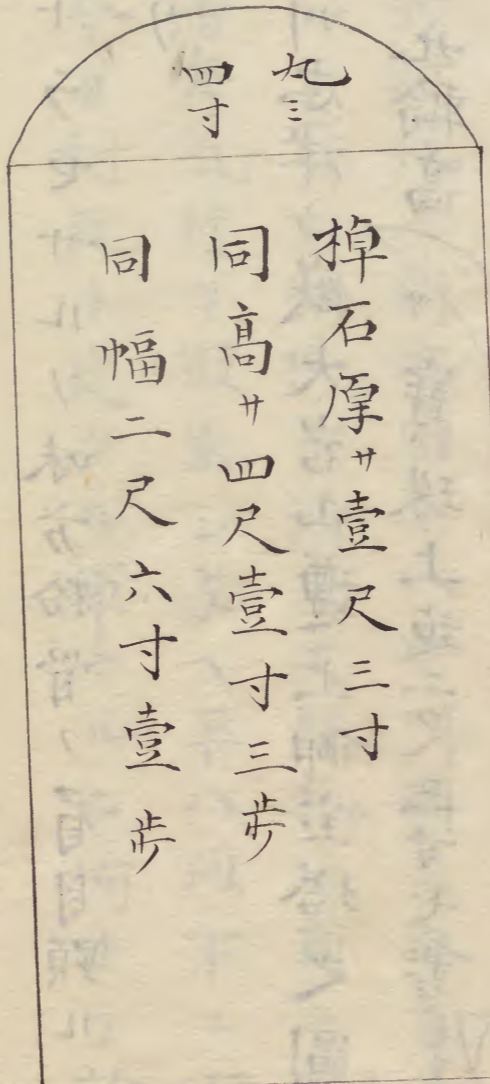 丸ミ
四寸
棹石厚サ壹尺三寸
同高サ四尺壹寸三歩
同幅二尺六寸壹歩